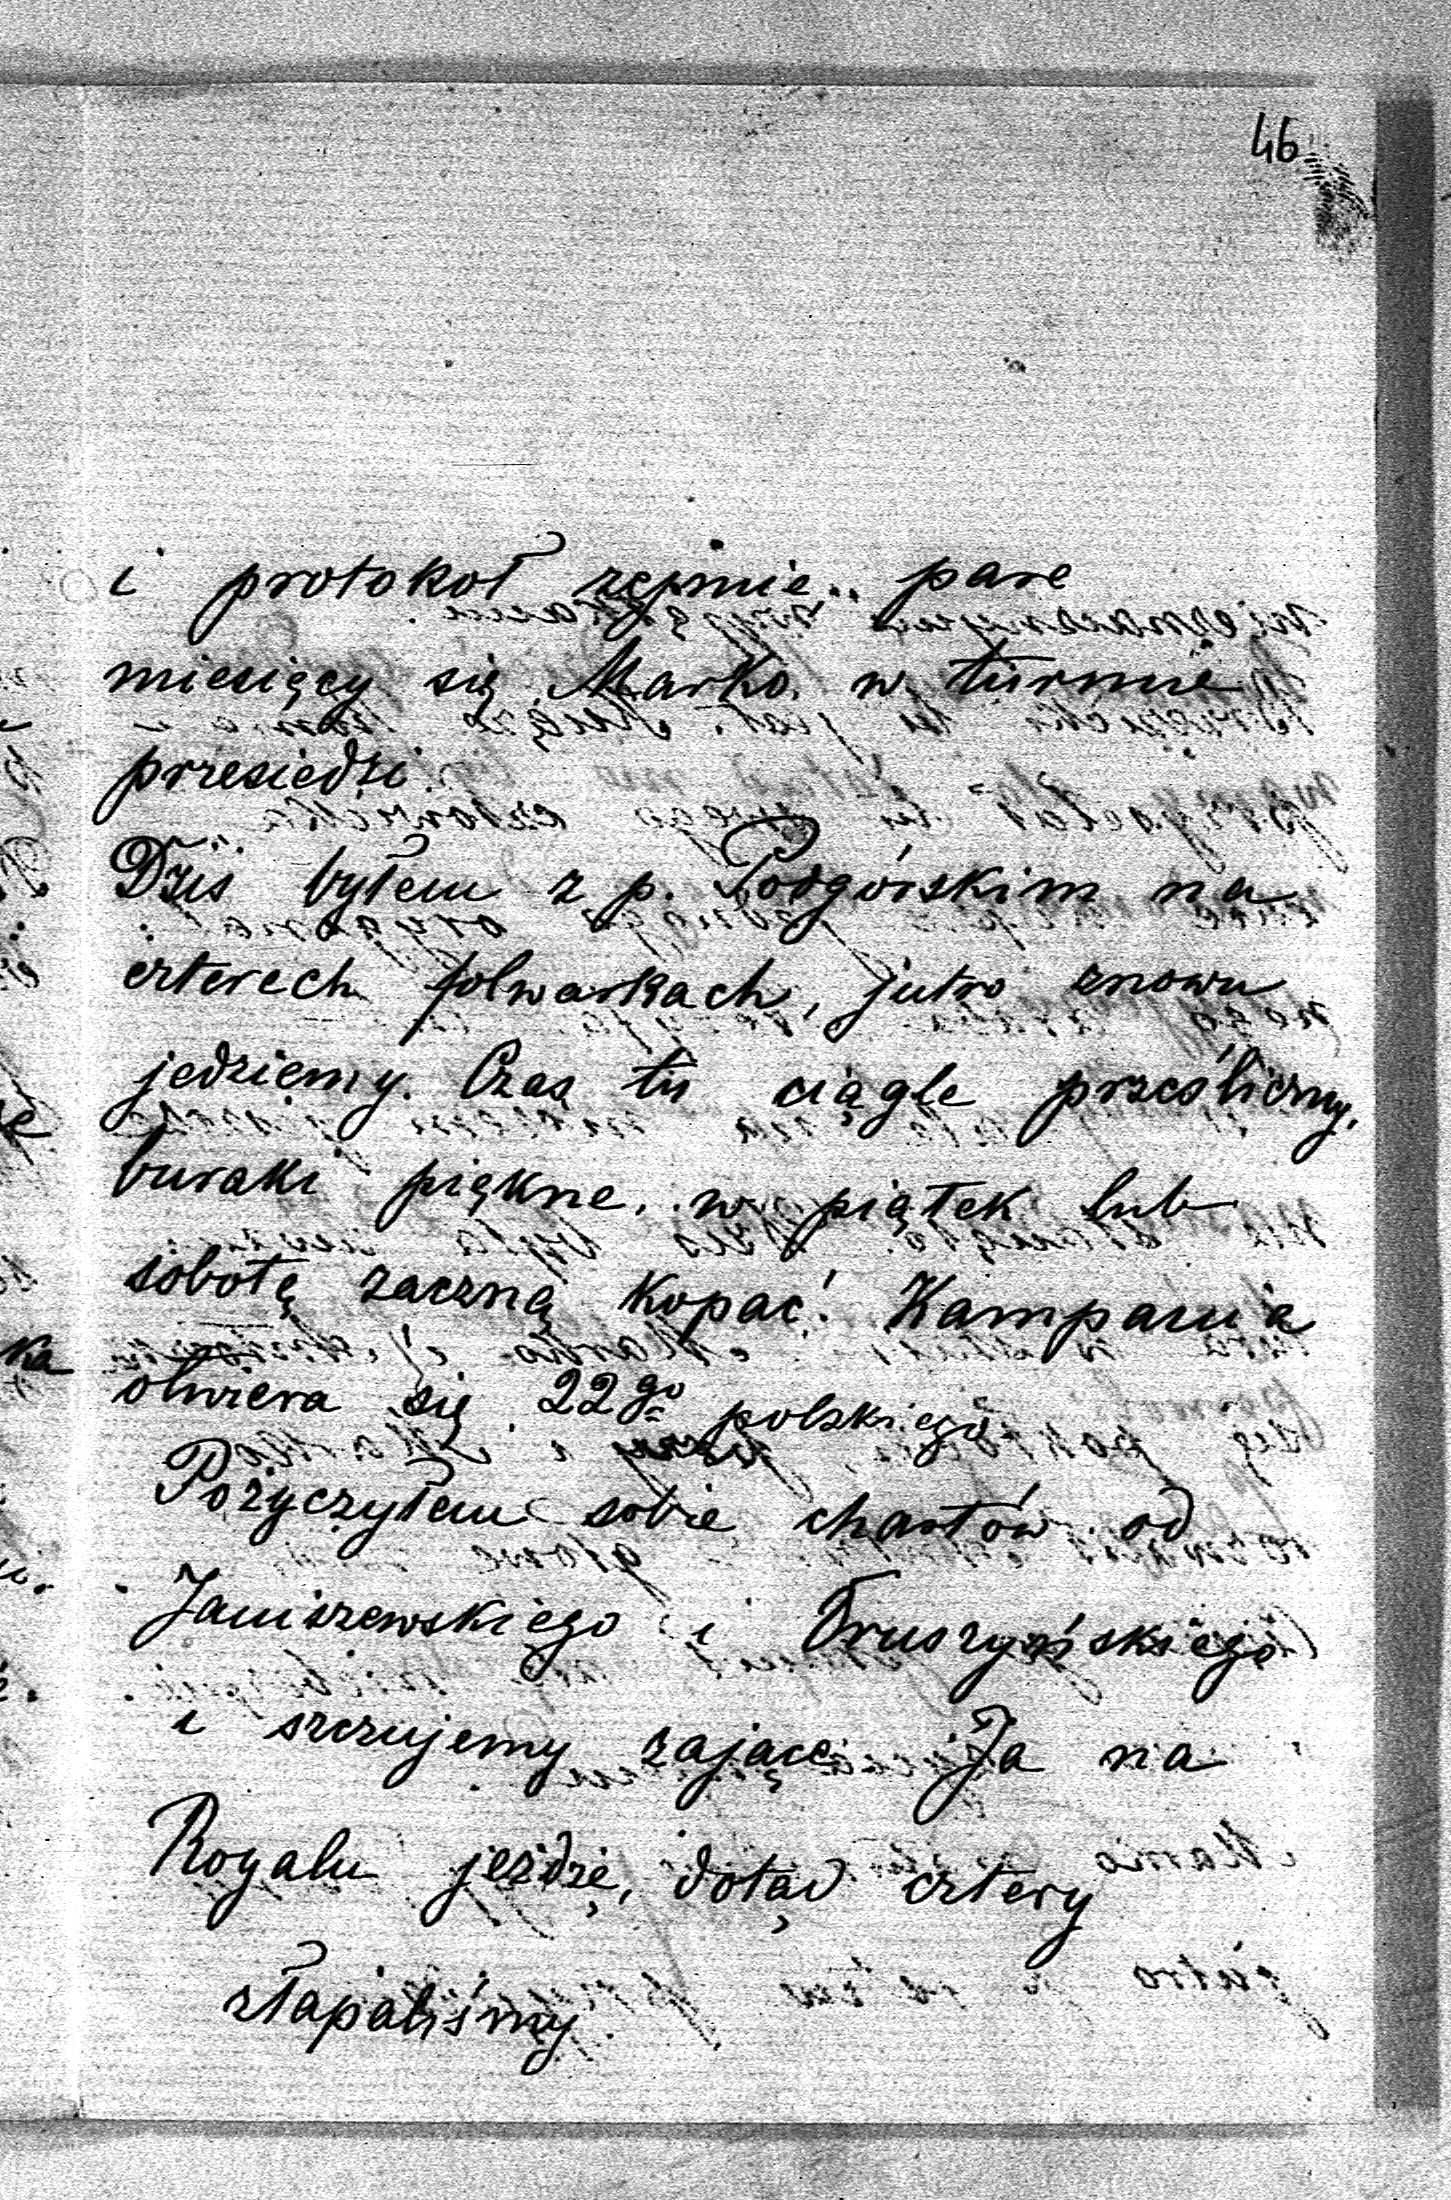 46
i protokoł zejmie.. pare
miesięcy się Marko w turmie
przesiedzi.
Dziś byłem z p. Podgórskim na
czterech folwarkach, jutro znowu
jedziemy. Czas tu ciągle prześliczny,
buraki piękne.. w piątek lub
sobotę zaczną kopać. Kampania
otwiera się 22go polskiego
Pożyczyłem sobie chartów od
Janiszewskiego i Gruszyńskiego
i szczujemy zające. Ja na
Royalu jeżdżę, dotąd cztery
złapaliśmy